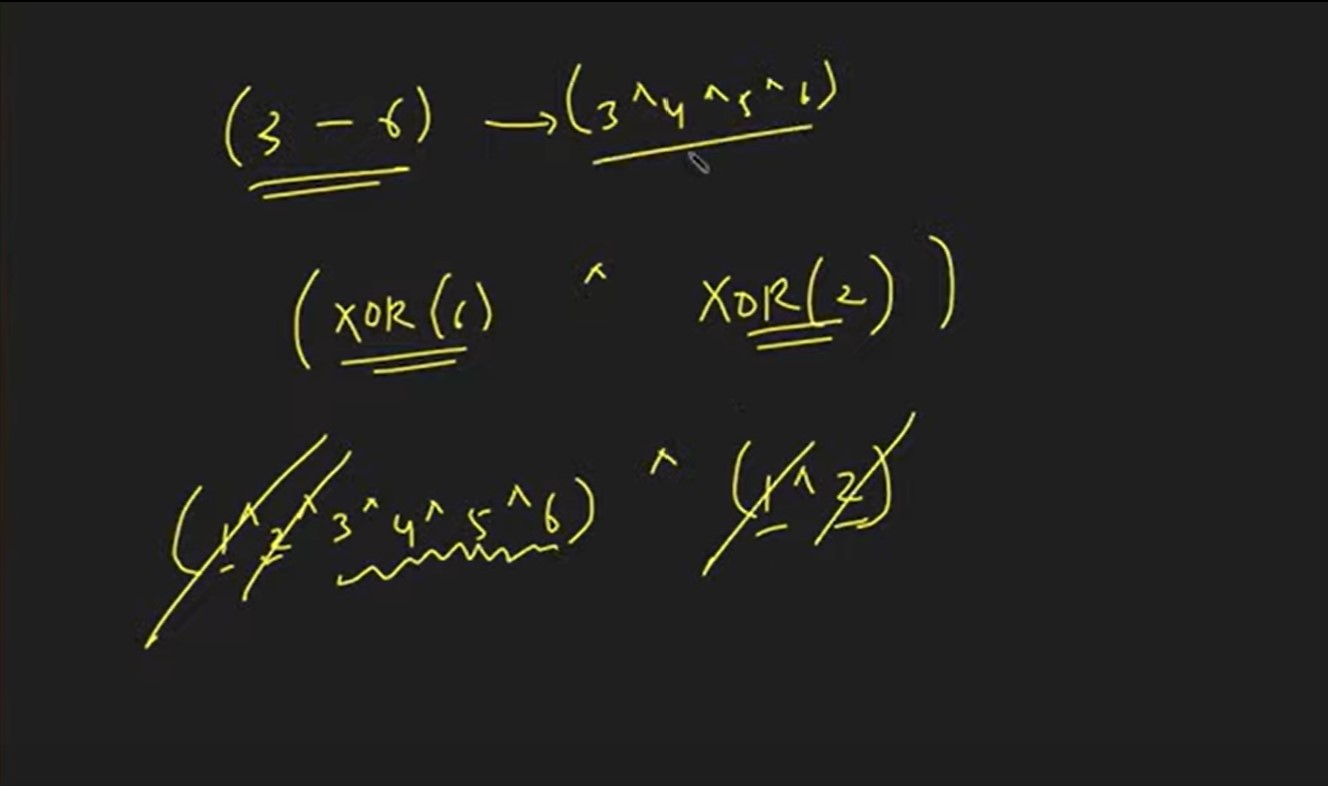 (3 - 6) → (3^4^5^6)
(XOR(6) ^ XOR(2))
(1^2^3^4^5^6) ^ (1^2)